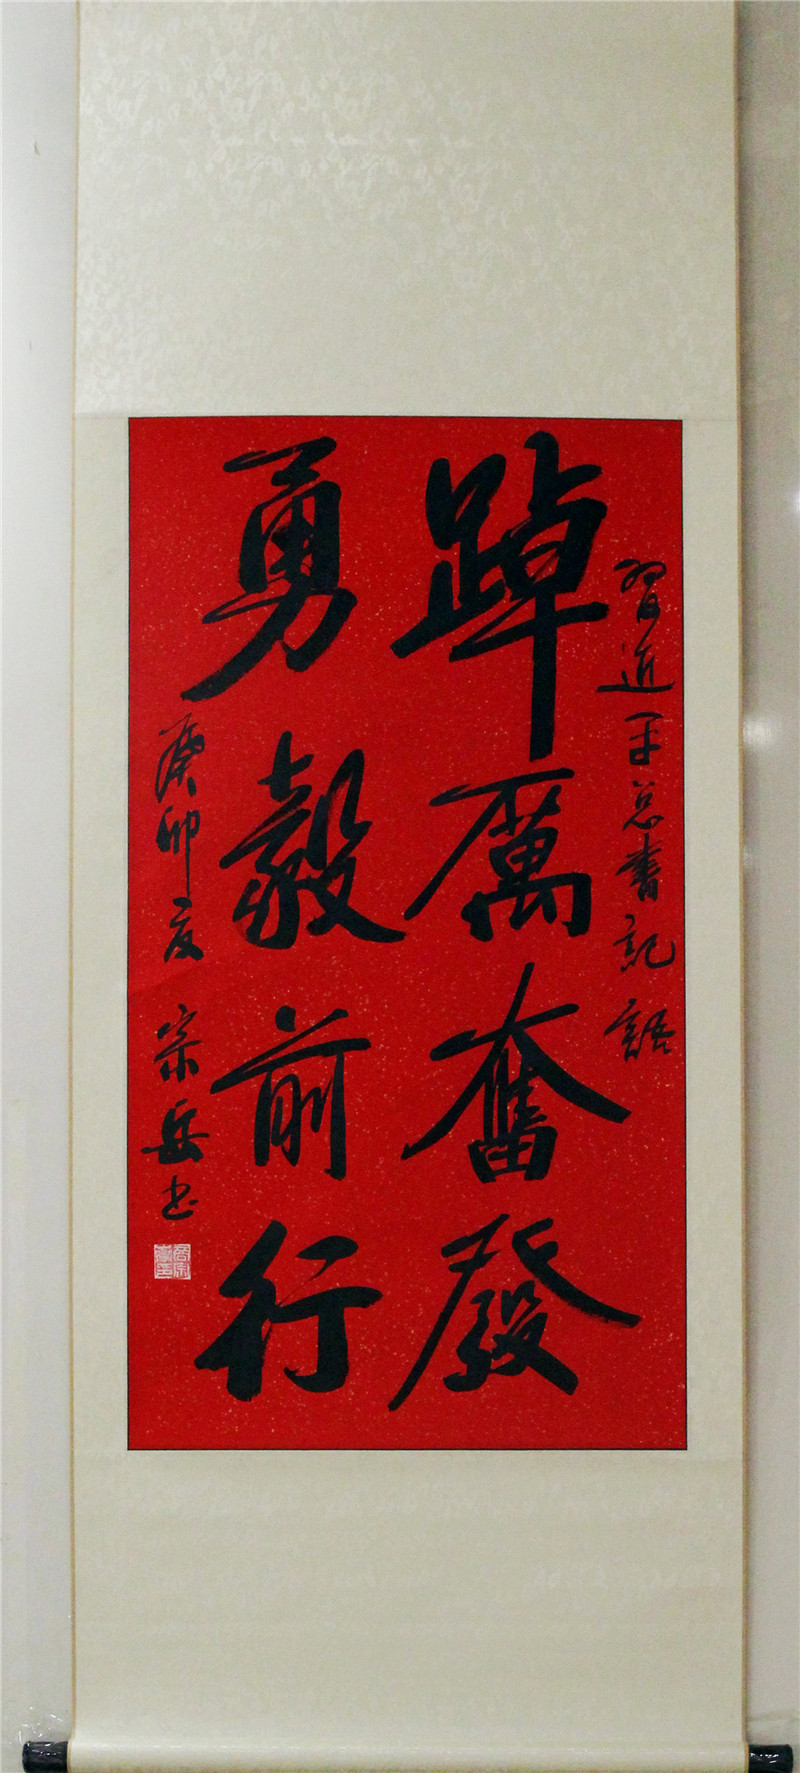 習近平总書記語
踔厲奮發
勇毅前行
癸卯夏 宗岳书